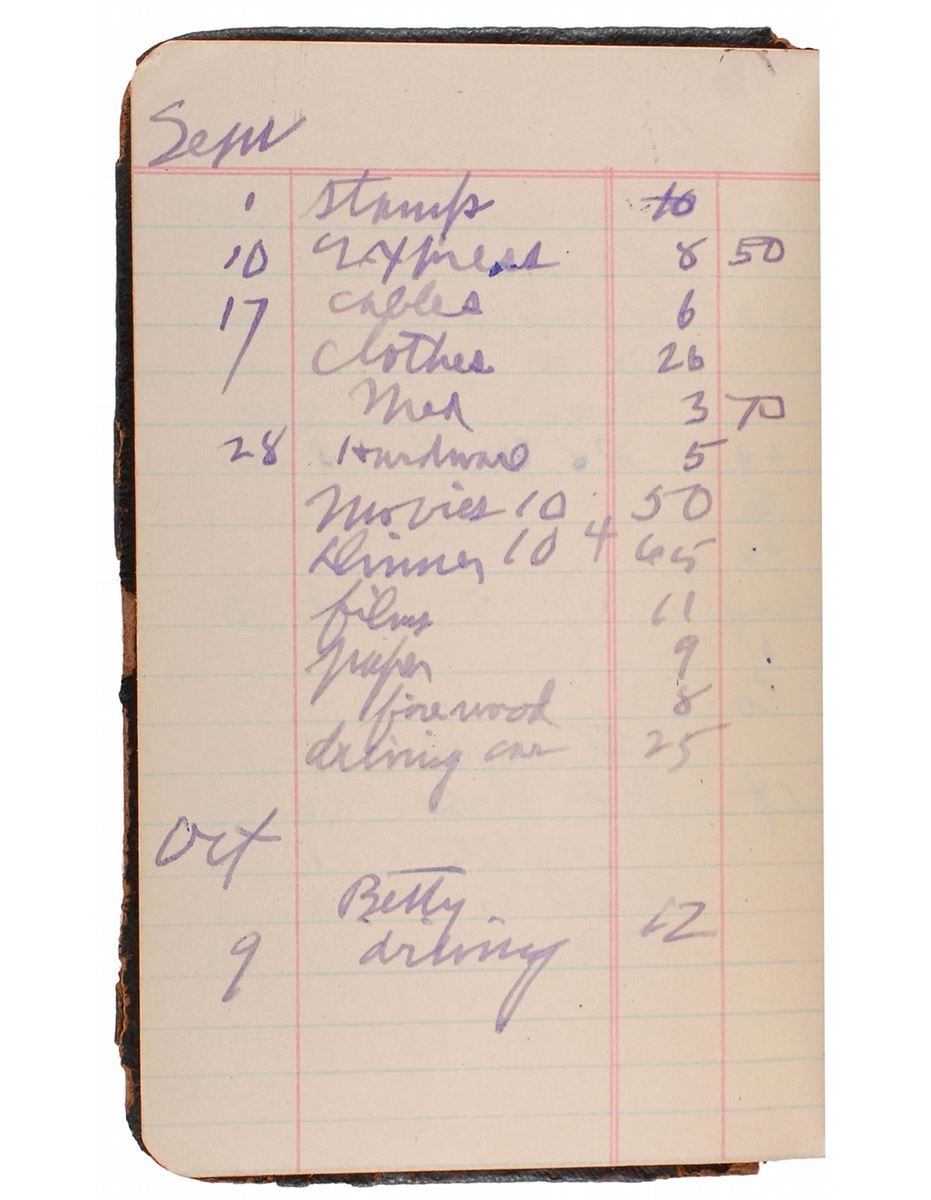 Sept
1 Stamps 10
10 Express 8 50
17 cables 6
Clothes 26
Med 3 70
28 Hardware 5
Movies 10 50
Dinner 10 4 65
films 11
paper 9
firewood 8
driving car 25
Oct
Betty
9 driving 12